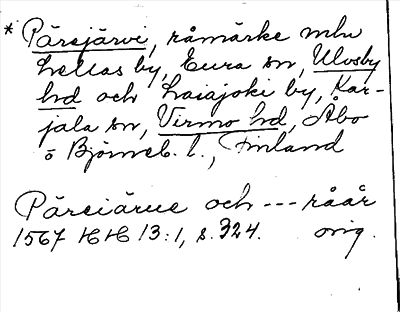 * Päresjärvi, råmärke mln
Lellas by, Eura sn, Ulvsby
hd och Laiajoki by, Kar-
jala sn, Virmo hd, Åbo
o Björneb. l., Finland
Päreiärue och --- råår
1567 HH 13:1, s. 324. orig.